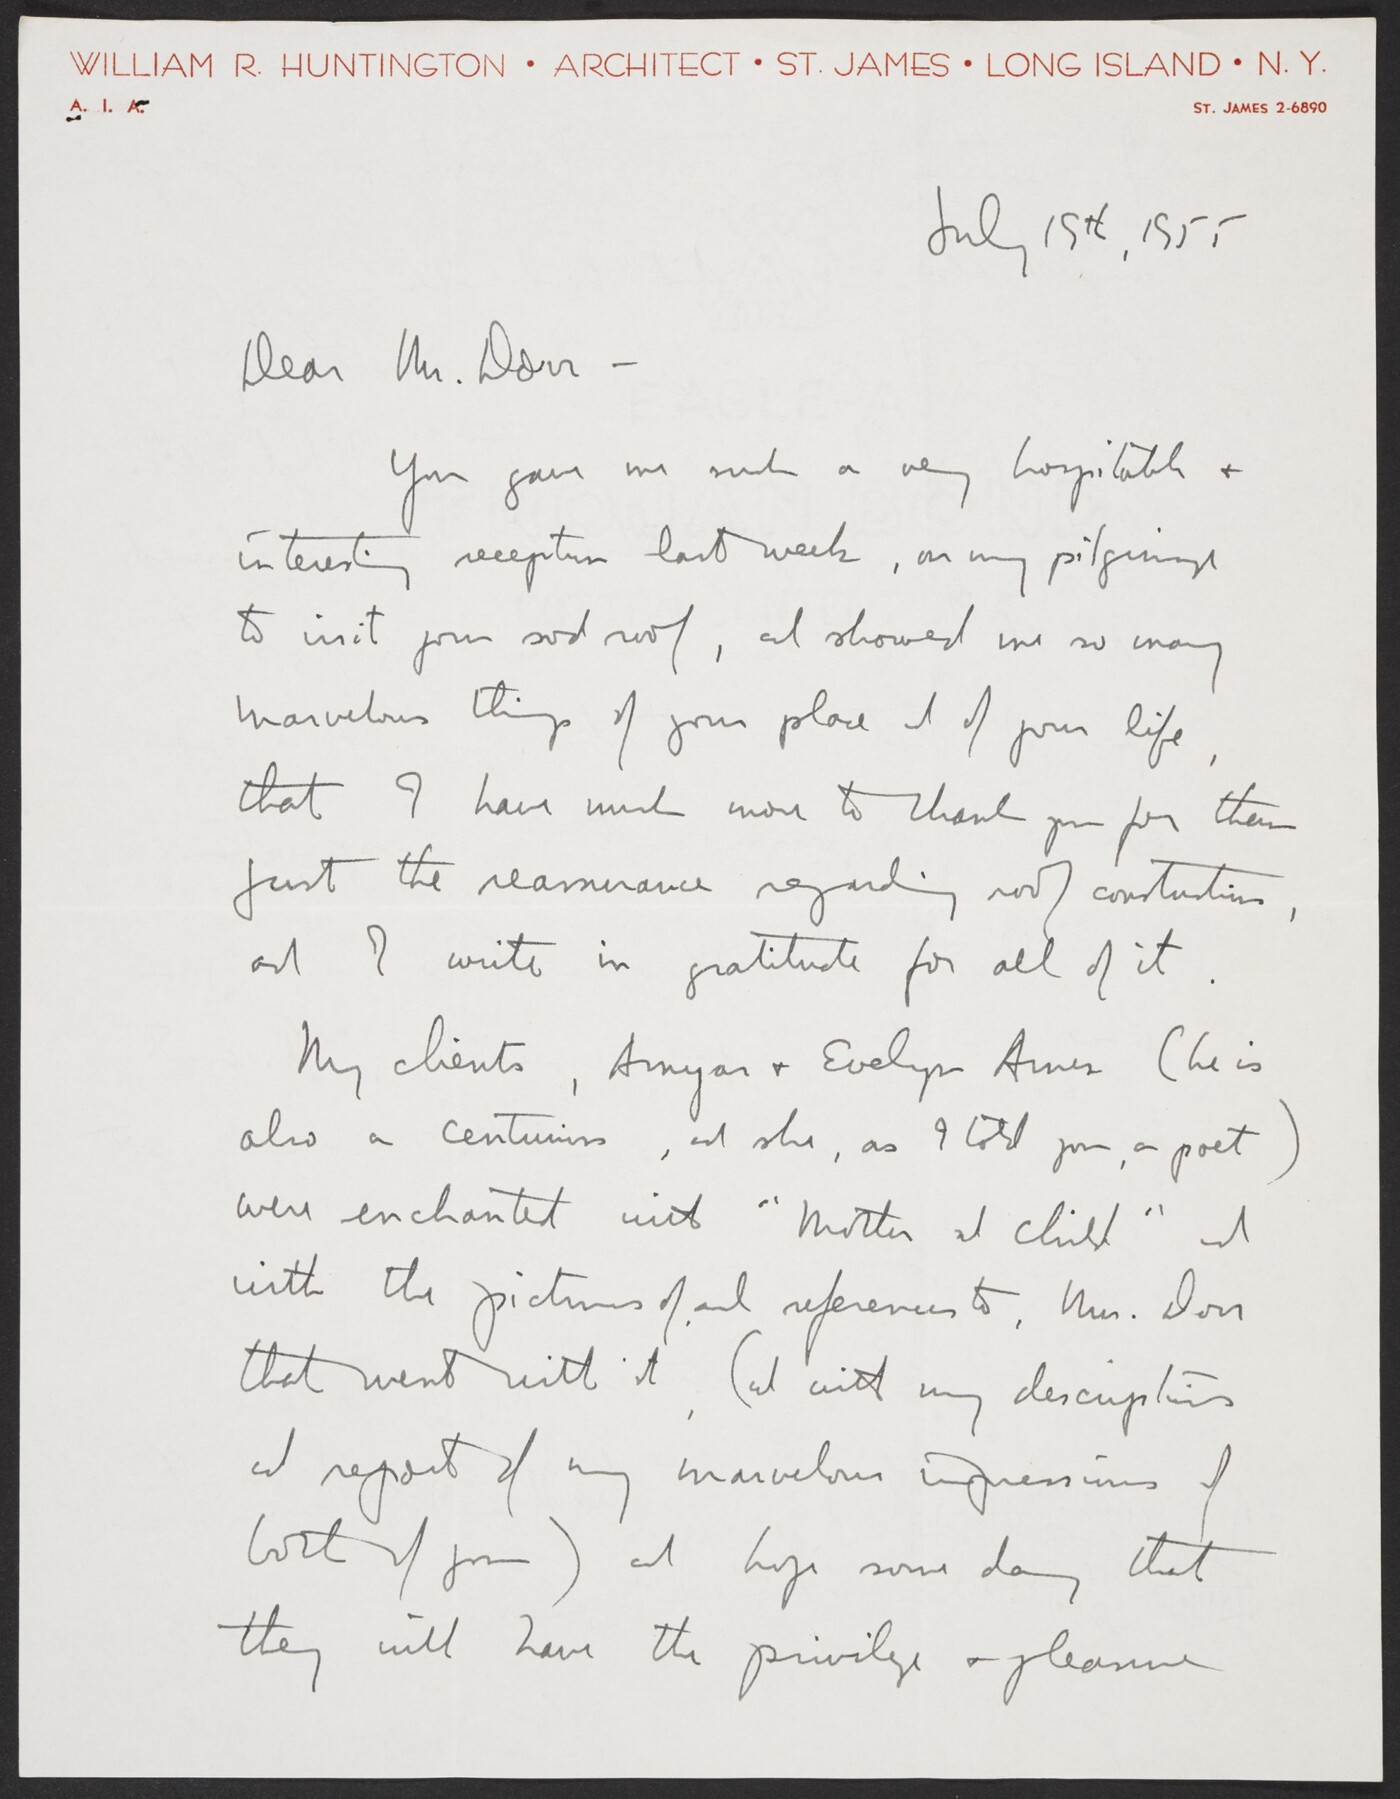 WILLIAM R. HUNTINGTON • ARCHITECT • ST. JAMES • LONG ISLAND • N. Y.
A. I. A. ST. JAMES 2-6890
July 19th, 1955
Dear Mr. Dorr –
You gave me such a very hospitable +
interesting reception last week, on my pilgrimage
to visit your sod roof, and showed me so many
marvelous things of your place and of your life,
that I have much more to thank you for than
just the reassurance regarding roof construction,
and I write in gratitude for all of it.
My clients, Amyas + Evelyn Ames (he is
also a centurion, and she, as I told you, a poet)
were enchanted with "Mother and Child" and
with the pictures of, and references to, Mrs. Dorr
that went with it, (and with my descriptions
and report of my marvelous impressions of
both of you) and hope some day that
they will have the privilege + pleasure